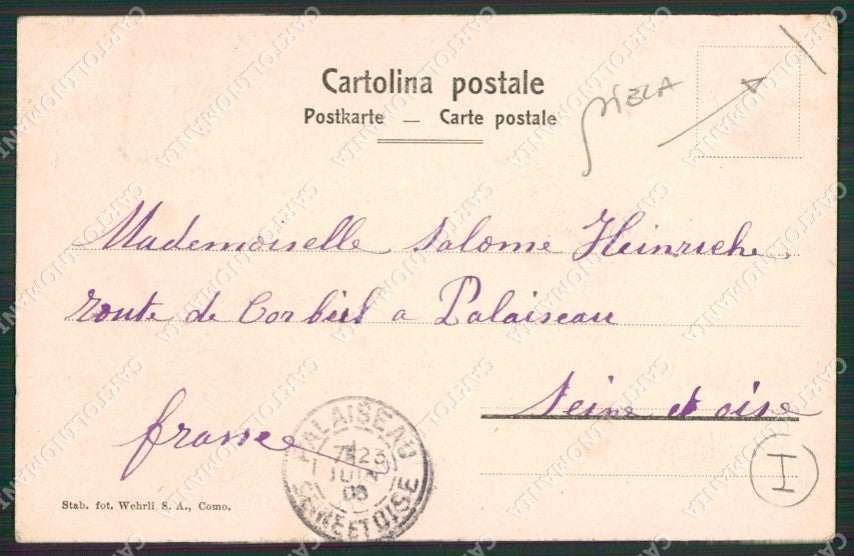 Cartolina postale
Postkarte — Carte postale
BIELLA
Mademoiselle Salome Heinriche
route de Corbeil a Palaiseau
Seine et oise
france
PALAISEAU
7 23
1 JUIN
05
SEINE ET OISE
I
Stab. fot. Wehrli S. A., Como.
CARTOLINOMANIA